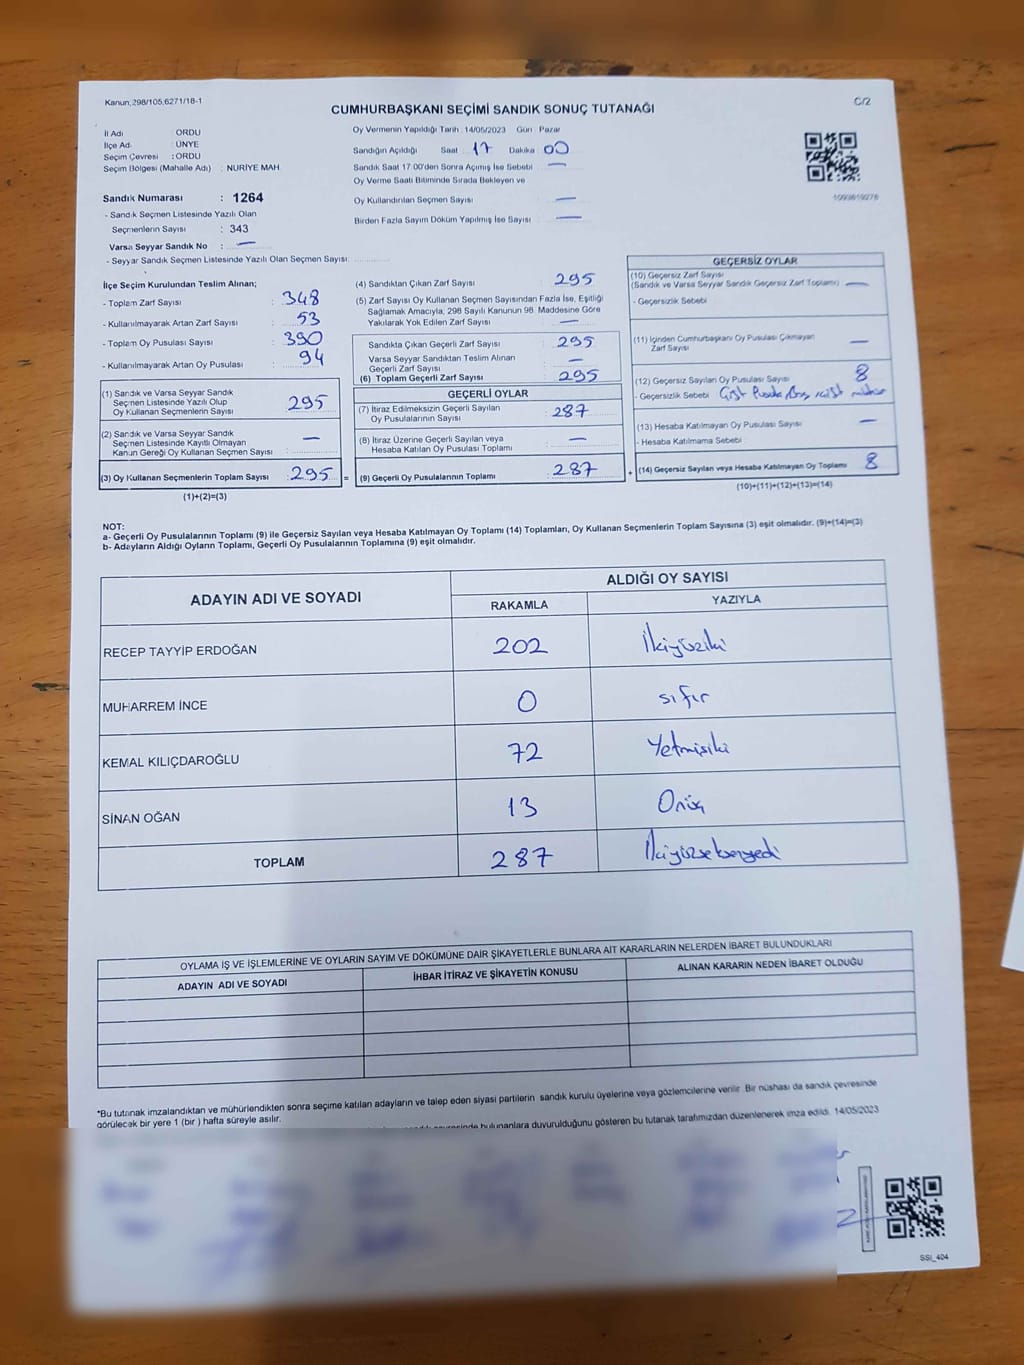 Kanun, 298/105,6271/18-1
C/2
CUMHURBAŞKANI SEÇİMİ SANDIK SONUÇ TUTANAĞI
İl Adı : ORDU
İlçe Adı : ÜNYE
Seçim Çevresi : ORDU
Seçim Bölgesi (Mahalle Adı) : NURİYE MAH
Oy Vermenin Yapıldığı Tarih : 14/05/2023 Gün : Pazar
Sandığın Açıldığı Saat 17 Dakika 00
Sandık Saat 17.00'den Sonra Açılmış İse Sebebi —
Oy Verme Saati Bitiminde Sırada Bekleyen ve
Oy Kullandırılan Seçmen Sayısı —
Birden Fazla Sayım Döküm Yapılmış İse Sayısı —
Sandık Numarası : 1264
- Sandık Seçmen Listesinde Yazılı Olan
Seçmenlerin Sayısı : 343
Varsa Seyyar Sandık No : —
- Seyyar Sandık Seçmen Listesinde Yazılı Olan Seçmen Sayısı:
İlçe Seçim Kurulundan Teslim Alınan;
- Toplam Zarf Sayısı : 348
- Kullanılmayarak Artan Zarf Sayısı : 53
- Toplam Oy Pusulası Sayısı : 390
- Kullanılmayarak Artan Oy Pusulası : 94
(1) Sandık ve Varsa Seyyar Sandık
Seçmen Listesinde Yazılı Olup
Oy Kullanan Seçmenlerin Sayısı : 295
(2) Sandık ve Varsa Seyyar Sandık
Seçmen Listesinde Kayıtlı Olmayan
Kanun Gereği Oy Kullanan Seçmen Sayısı : —
(3) Oy Kullanan Seçmenlerin Toplam Sayısı : 295
(1)+(2)=(3)
(4) Sandıktan Çıkan Zarf Sayısı : 295
(5) Zarf Sayısı Oy Kullanan Seçmen Sayısından Fazla İse, Eşitliği
Sağlamak Amacıyla, 298 Sayılı Kanunun 98. Maddesine Göre
Yakılarak Yok Edilen Zarf Sayısı : —
Sandıkta Çıkan Geçerli Zarf Sayısı : 295
Varsa Seyyar Sandıktan Teslim Alınan
Geçerli Zarf Sayısı : —
(6) Toplam Geçerli Zarf Sayısı : 295
GEÇERLİ OYLAR
(7) İtiraz Edilmeksizin Geçerli Sayılan
Oy Pusulalarının Sayısı : 287
(8) İtiraz Üzerine Geçerli Sayılan veya
Hesaba Katılan Oy Pusulası Toplamı : —
= (9) Geçerli Oy Pusulalarının Toplamı : 287
GEÇERSİZ OYLAR
(10) Geçersiz Zarf Sayısı
(Sandık ve Varsa Seyyar Sandık Geçersiz Zarf Toplamı) : —
- Geçersizlik Sebebi
(11) İçinden Cumhurbaşkanı Oy Pusulası Çıkmayan
Zarf Sayısı —
(12) Geçersiz Sayılan Oy Pusulası Sayısı : 8
- Geçersizlik Sebebi
(13) Hesaba Katılmayan Oy Pusulası Sayısı : —
- Hesaba Katılmama Sebebi
+ (14) Geçersiz Sayılan veya Hesaba Katılmayan Oy Toplamı : 8
(10)+(11)+(12)+(13)=(14)
NOT:
a- Geçerli Oy Pusulalarının Toplamı (9) ile Geçersiz Sayılan veya Hesaba Katılmayan Oy Toplamı (14) Toplamları, Oy Kullanan Seçmenlerin Toplam Sayısına (3) eşit olmalıdır. (9)+(14)=(3)
b- Adayların Aldığı Oyların Toplamı, Geçerli Oy Pusulalarının Toplamına (9) eşit olmalıdır.
ADAYIN ADI VE SOYADI
ALDIĞI OY SAYISI
RAKAMLA YAZIYLA
RECEP TAYYİP ERDOĞAN 202 İkiyüziki
MUHARREM İNCE 0 sıfır
KEMAL KILIÇDAROĞLU 72 Yetmişiki
SİNAN OĞAN 13 Onüç
TOPLAM 287 İkiyüzseksenyedi
OYLAMA İŞ VE İŞLEMLERİNE VE OYLARIN SAYIM VE DÖKÜMÜNE DAİR ŞİKAYETLERLE BUNLARA AİT KARARLARIN NELERDEN İBARET BULUNDUKLARI
ADAYIN ADI VE SOYADI İHBAR İTİRAZ VE ŞİKAYETİN KONUSU ALINAN KARARIN NEDEN İBARET OLDUĞU
*Bu tutanak imzalandıktan ve mühürlendikten sonra seçime katılan adayların ve talep eden siyasi partilerin sandık kurulu üyelerine veya gözlemcilerine verilir. Bir nüshası da sandık çevresinde
görülecek bir yere 1 (bir) hafta süreyle asılır.
bulunanlara duyurulduğunu gösteren bu tutanak tarafımızdan düzenlenerek imza edildi. 14/05/2023
SSI_404